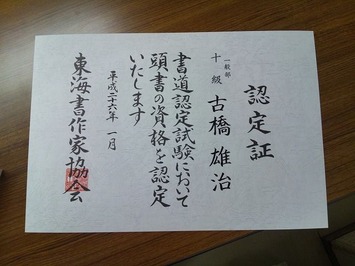 認定証
一般部
十級 古橋雄治
書道認定試験において
頭書の資格を認定
いたします
平成二十六年 一月
東海書作家協会